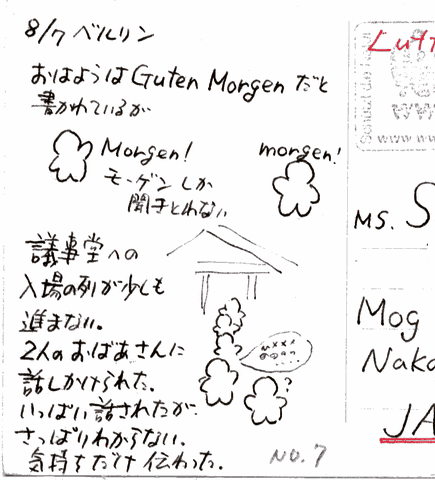 8/7 ベルリン
おはようは Guten Morgen だと
書かれているが
Morgen!
morgen!
モーゲンしか
聞きとれない
議事堂への
入場の列が少しも
進まない。
2人のおばあさんに
話しかけられた。
いっぱい話されたが
さっぱりわからない。
気持ちだけ伝わった。
?
NO.7
Luft
MS. S
Mog
Naka
JA